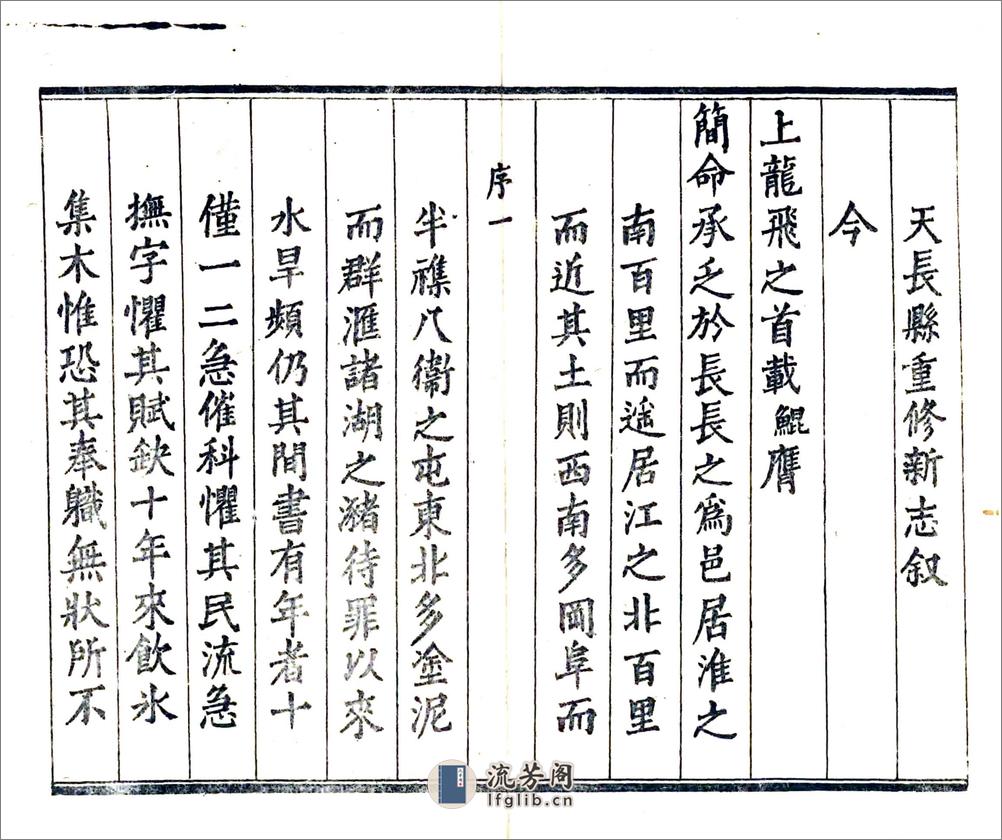 天長縣重修新志叙
今
上龍飛之首載鯤膺
簡命承乏於長長之爲邑居淮之
南百里而遥居江之北百里
而近其土則西南多岡阜而
序一
半襍八衞之屯東北多塗泥
而群滙諸湖之瀦待罪以來
水旱頻仍其間書有年者十
僅一二急催科懼其民流急
撫字懼其賦缺十年來飲氷
集木惟恐其奉職無狀所不
流芳阁
lfglib.cn